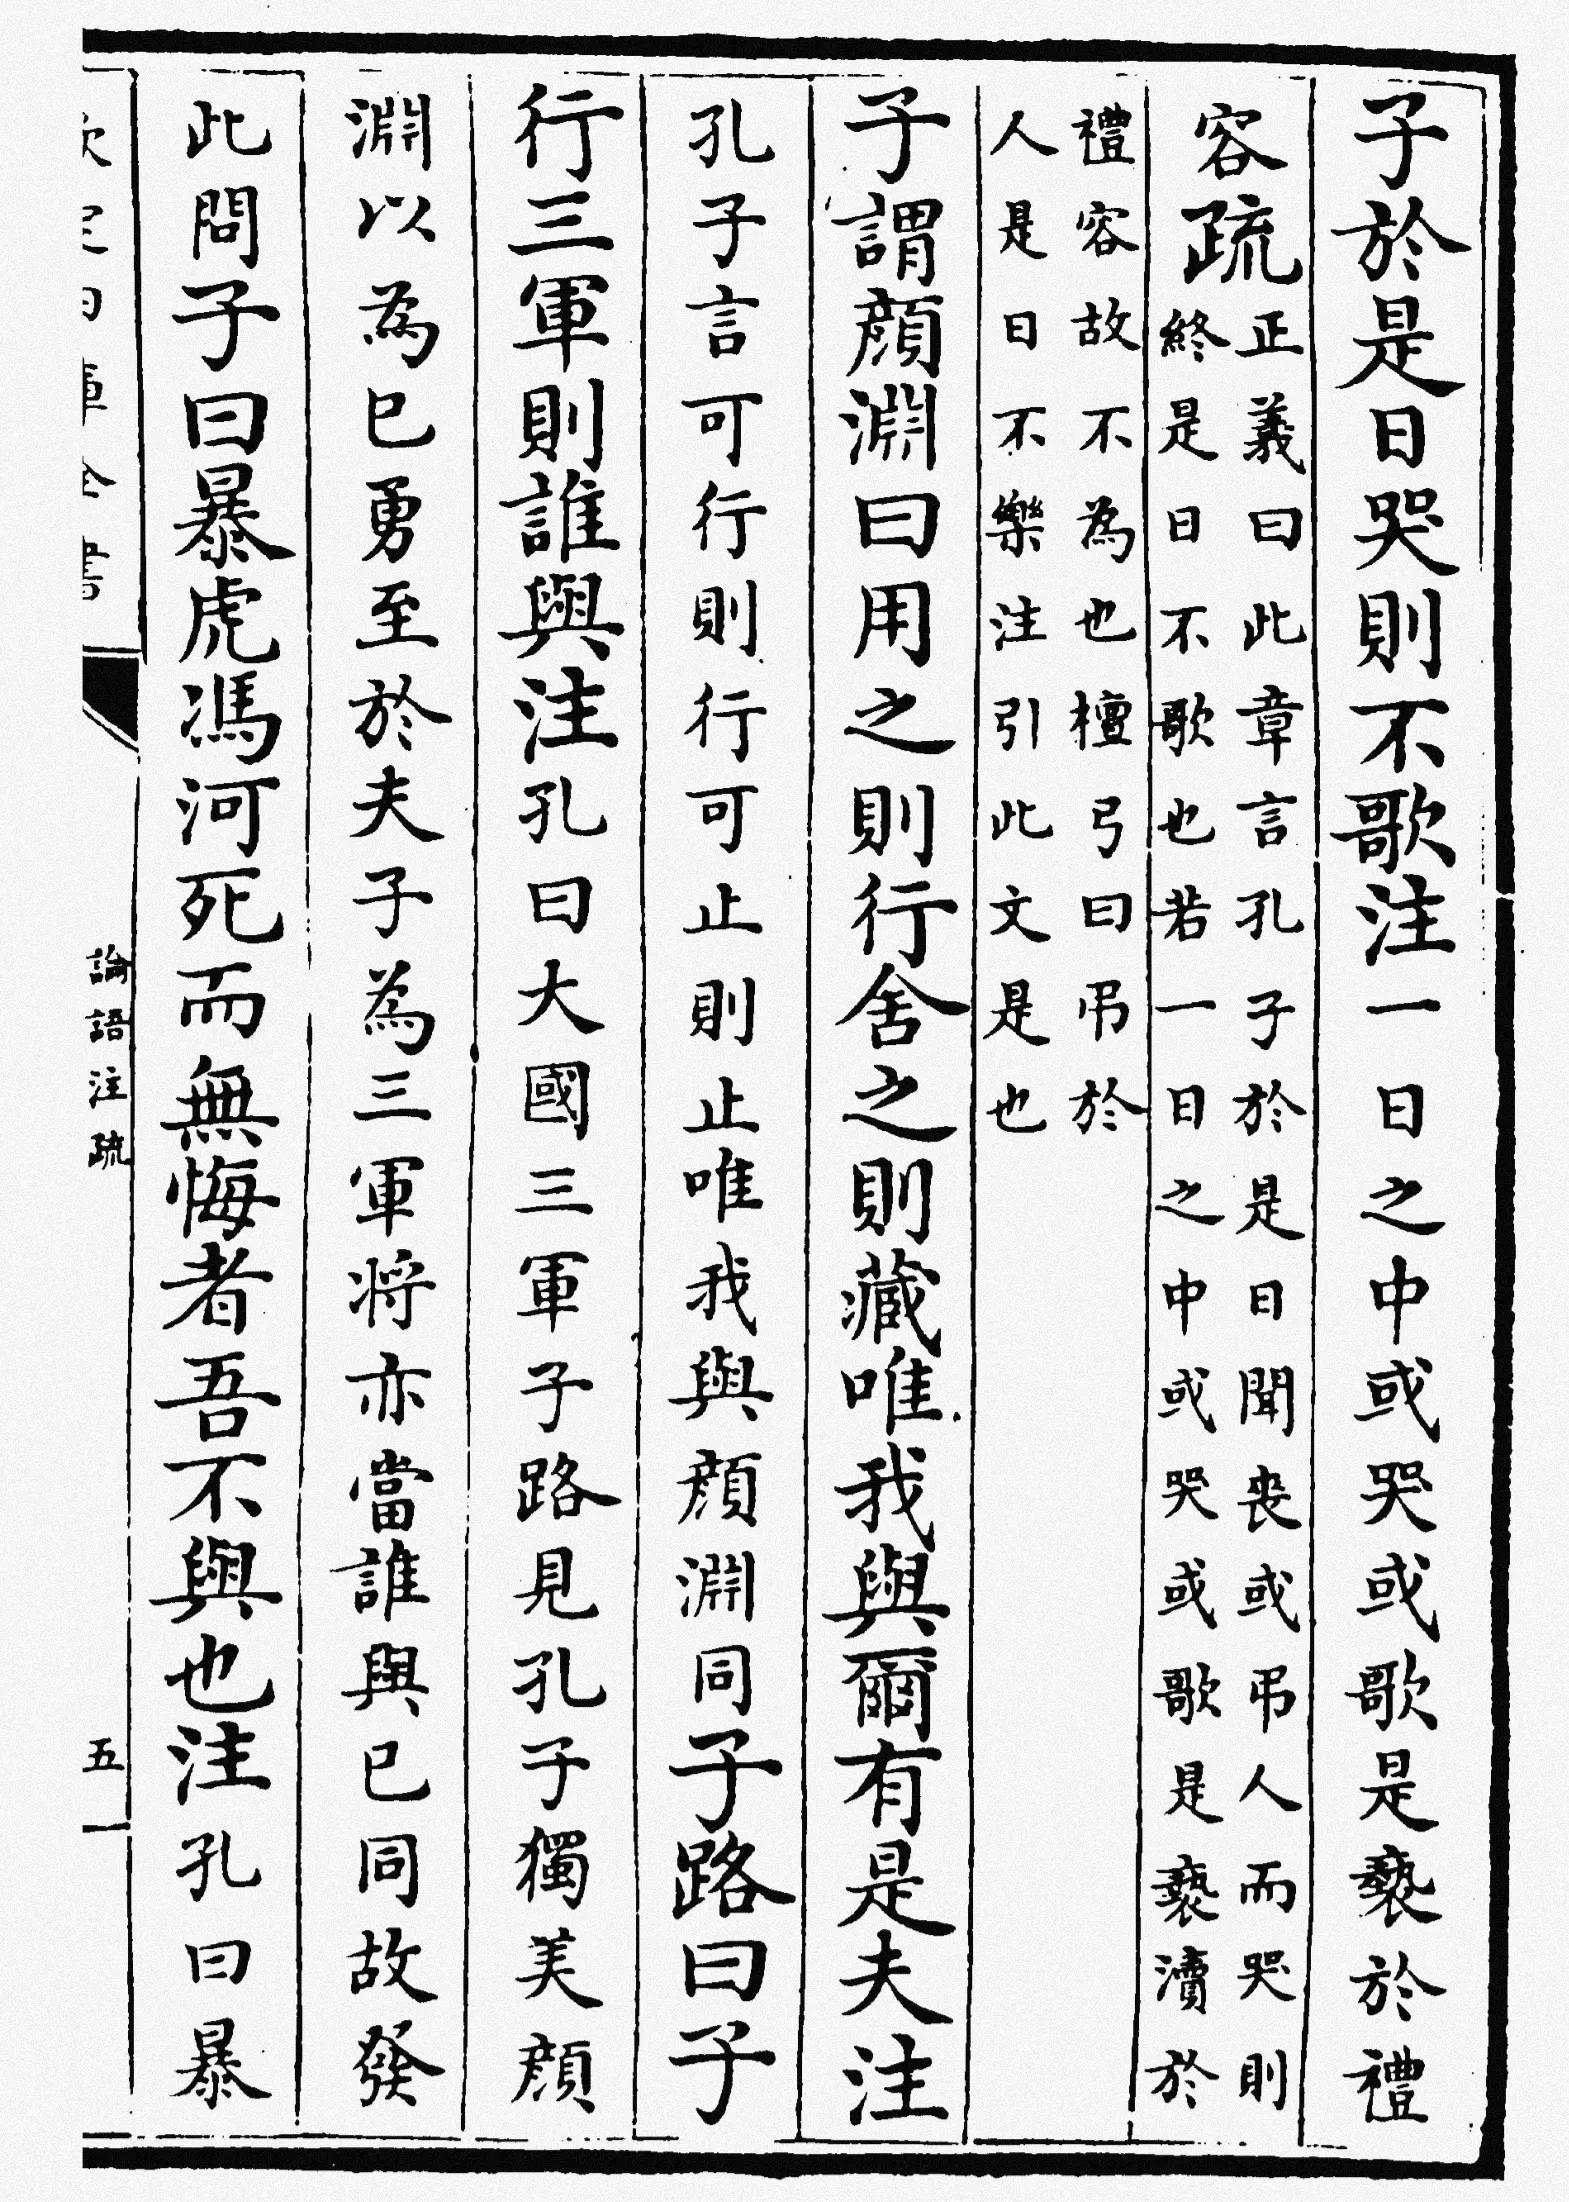 子於是日哭則不歌注一日之中或哭或歌是褻於禮
容疏正義曰此章言孔子於是日聞喪或弔人而哭則
終是日不歌也若一日之中或哭或歌是褻瀆於
禮容故不為也檀弓曰弔於
人是日不樂注引此文是也
子謂顔淵曰用之則行舍之則藏唯我與爾有是夫注
孔子言可行則行可止則止唯我與顔淵同子路曰子
行三軍則誰與注孔曰大國三軍子路見孔子獨美顔
淵以為已勇至於夫子為三軍將亦當誰與已同故發
此問子曰暴虎馮河死而無悔者吾不與也注孔曰暴
欽定四庫全書
論語注疏
五